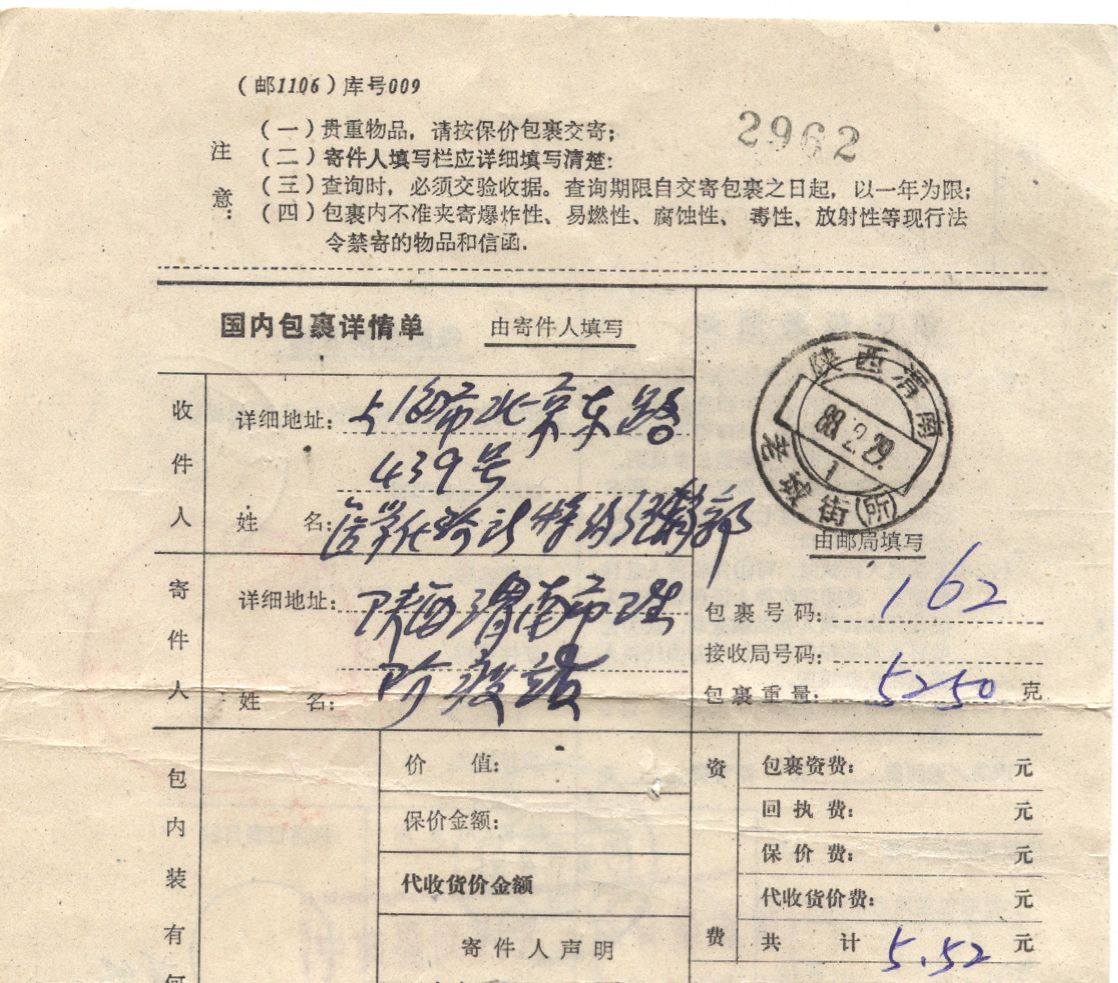 (邮1106)库号009
2962
注意:
(一)贵重物品,请按保价包裹交寄;
(二)寄件人填写栏应详细填写清楚:
(三)查询时,必须交验收据。查询期限自交寄包裹之日起,以一年为限;
(四)包裹内不准夹寄爆炸性、易燃性、腐蚀性、毒性、放射性等现行法
令禁寄的物品和信函.
国内包裹详情单 由寄件人填写
陕西渭南
88.2.29.
1
老城街(所)
收件人
详细地址:上海市北京东路
439号
姓 名:
由邮局填写
寄件人
详细地址:陕西渭南市
防疫站
姓 名:
包裹号码:162
接收局号码:
包裹重量:5250克
包内装有何
价 值:
保价金额:
代收货价金额
寄件人声明
资费
包裹资费: 元
回执费: 元
保价费: 元
代收货价费: 元
共 计 5.52 元